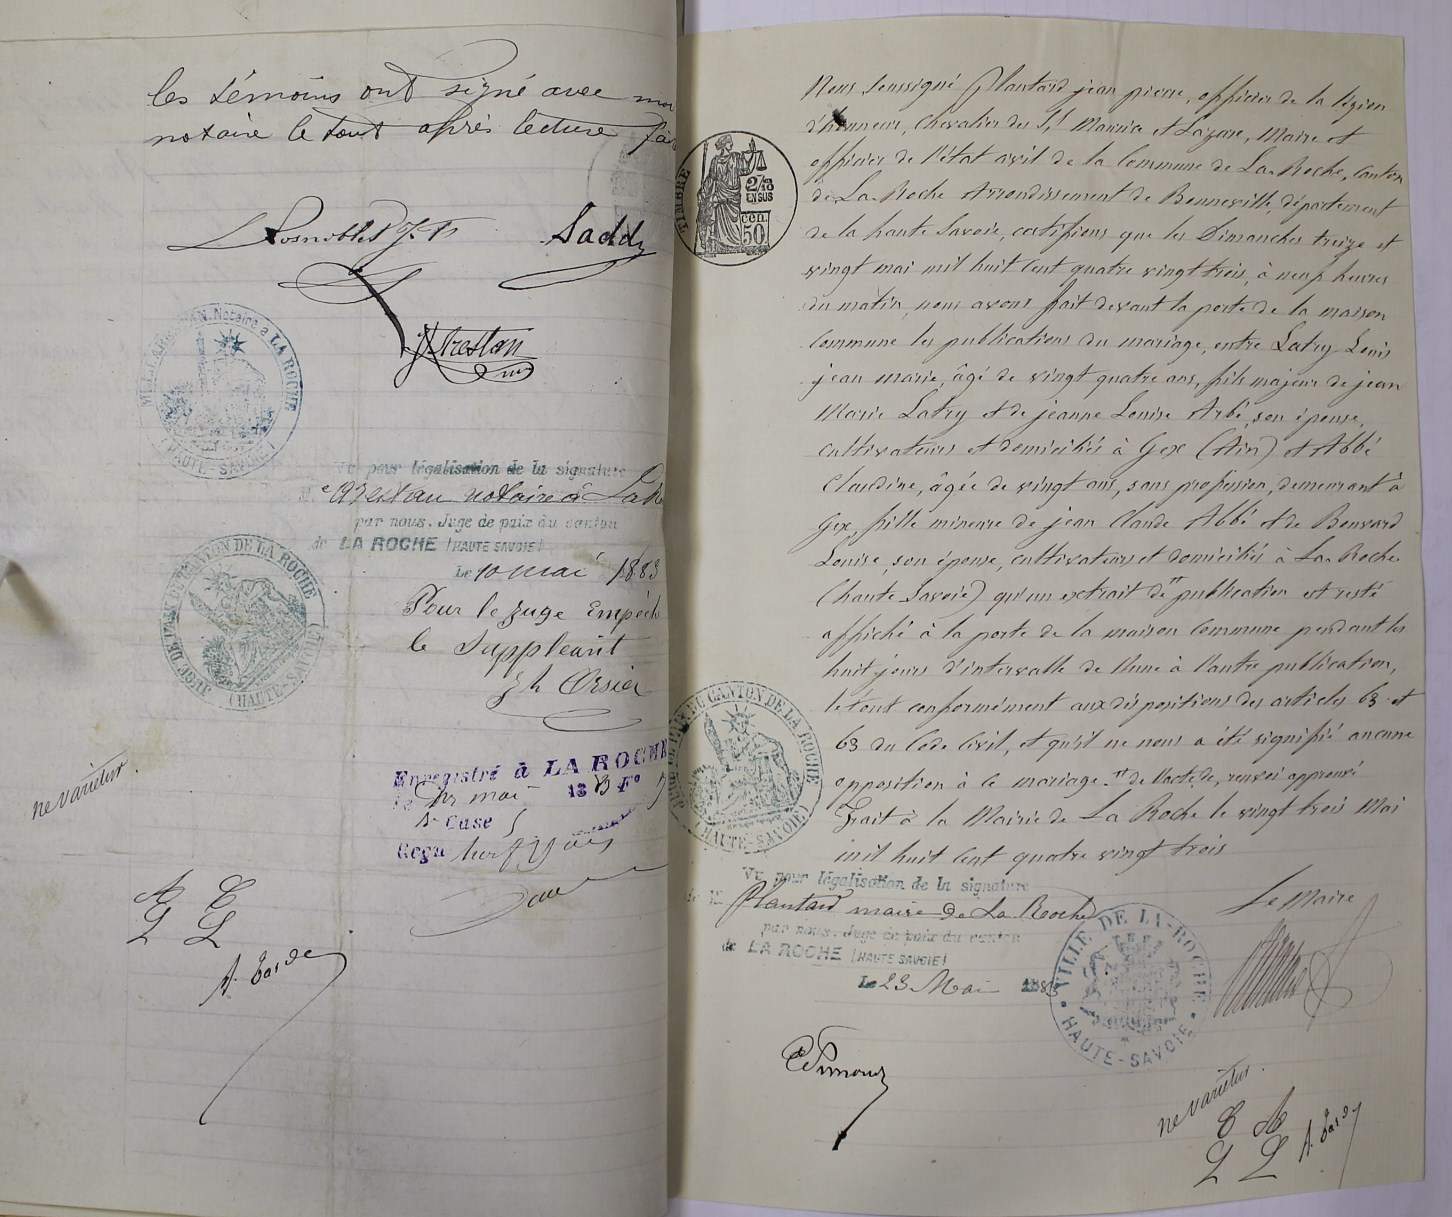 les témoins ont signé avec moi
notaire le tout après lecture fai
Saddy
NOTAIRE A LA ROCHE
(HAUTE-SAVOIE)
Vu pour légalisation de la signature
notaire à La
par nous. Juge de paix du canton
de LA ROCHE (HAUTE SAVOIE)
Le 10 mai 1883
Pour le juge Empêch
le Suppléant
JUGE DE PAIX DU CANTON DE LA ROCHE
(HAUTE-SAVOIE)
Enregistré à LA ROCHE
mai 188 F°
Case
Reçu
ne varietur.
A. Tarde
TIMBRE
2/10
EN SUS
CEN.
50
Nous Soussigné Plantard jean pierre, officier de la légion
d'honneur, Chevalier des S.ts Maurice et Lazare, Maire et
officier de l'état civil de la Commune de La Roche, Canton
de La Roche Arrondissement de Bonneville, département
de la haute Savoie, certifions que les Dimanches treize et
vingt mai mil huit cent quatre vingt trois, à neuf heures
du matin, nous avons fait devant la porte de la maison
Commune les publications du mariage, entre Latry Louis
jean marie, âgé de vingt quatre ans, fils majeur de jean
Marie Latry et de jeanne Louise Arbé, son épouse,
cultivateurs et domiciliés à Gex (Ain) et Abbé
Claudine, âgée de vingt ans, sans profession, demeurant à
Gex, fille mineure de jean Claude Abbé et de Benvard
Louise, son épouse, cultivateurs et domiciliés à La Roche
(haute Savoie) qu'un extrait de publication est resté
affiché à la porte de la maison Commune pendant les
huit jours d'intervalle de l'une à l'autre publication,
le tout conformément aux dispositions des articles 63 et
63 du Code Civil, et qu'il ne nous a été signifié aucune
opposition à ce mariage. de l'acte de, renvoi approuvé
Fait à la Mairie de La Roche le vingt trois Mai
mil huit cent quatre vingt trois
Le Maire
JUGE DE PAIX DU CANTON DE LA ROCHE
(HAUTE-SAVOIE)
Vu pour légalisation de la signature
de M. Plantard maire de La Roche
par nous. Juge de paix du canton
de LA ROCHE (HAUTE SAVOIE)
Le 23 Mai 1883
VILLE DE LA-ROCHE
HAUTE-SAVOIE
ne varietur.
A. Tardy